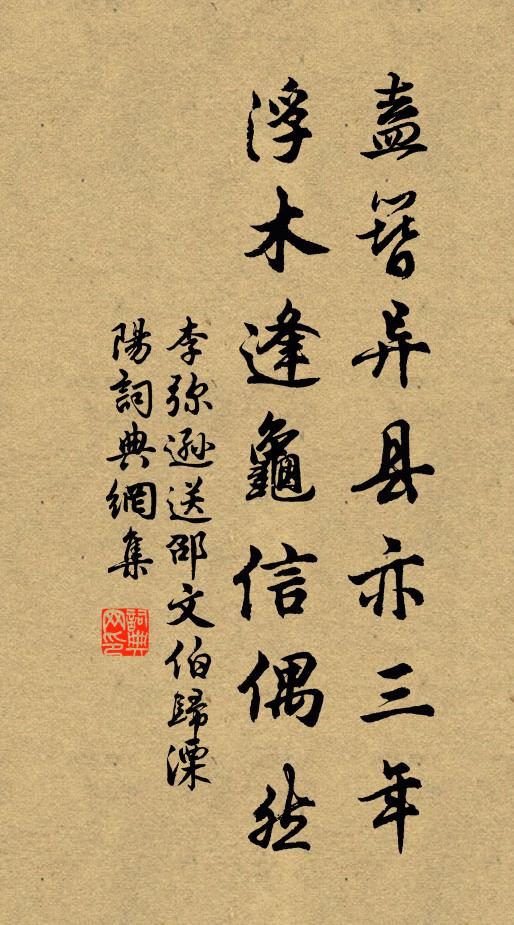 盍簪异县亦三年
浮木逢龜信偶然
李弥遜送邵文伯歸溧
陽詞典網集
詞典
网印